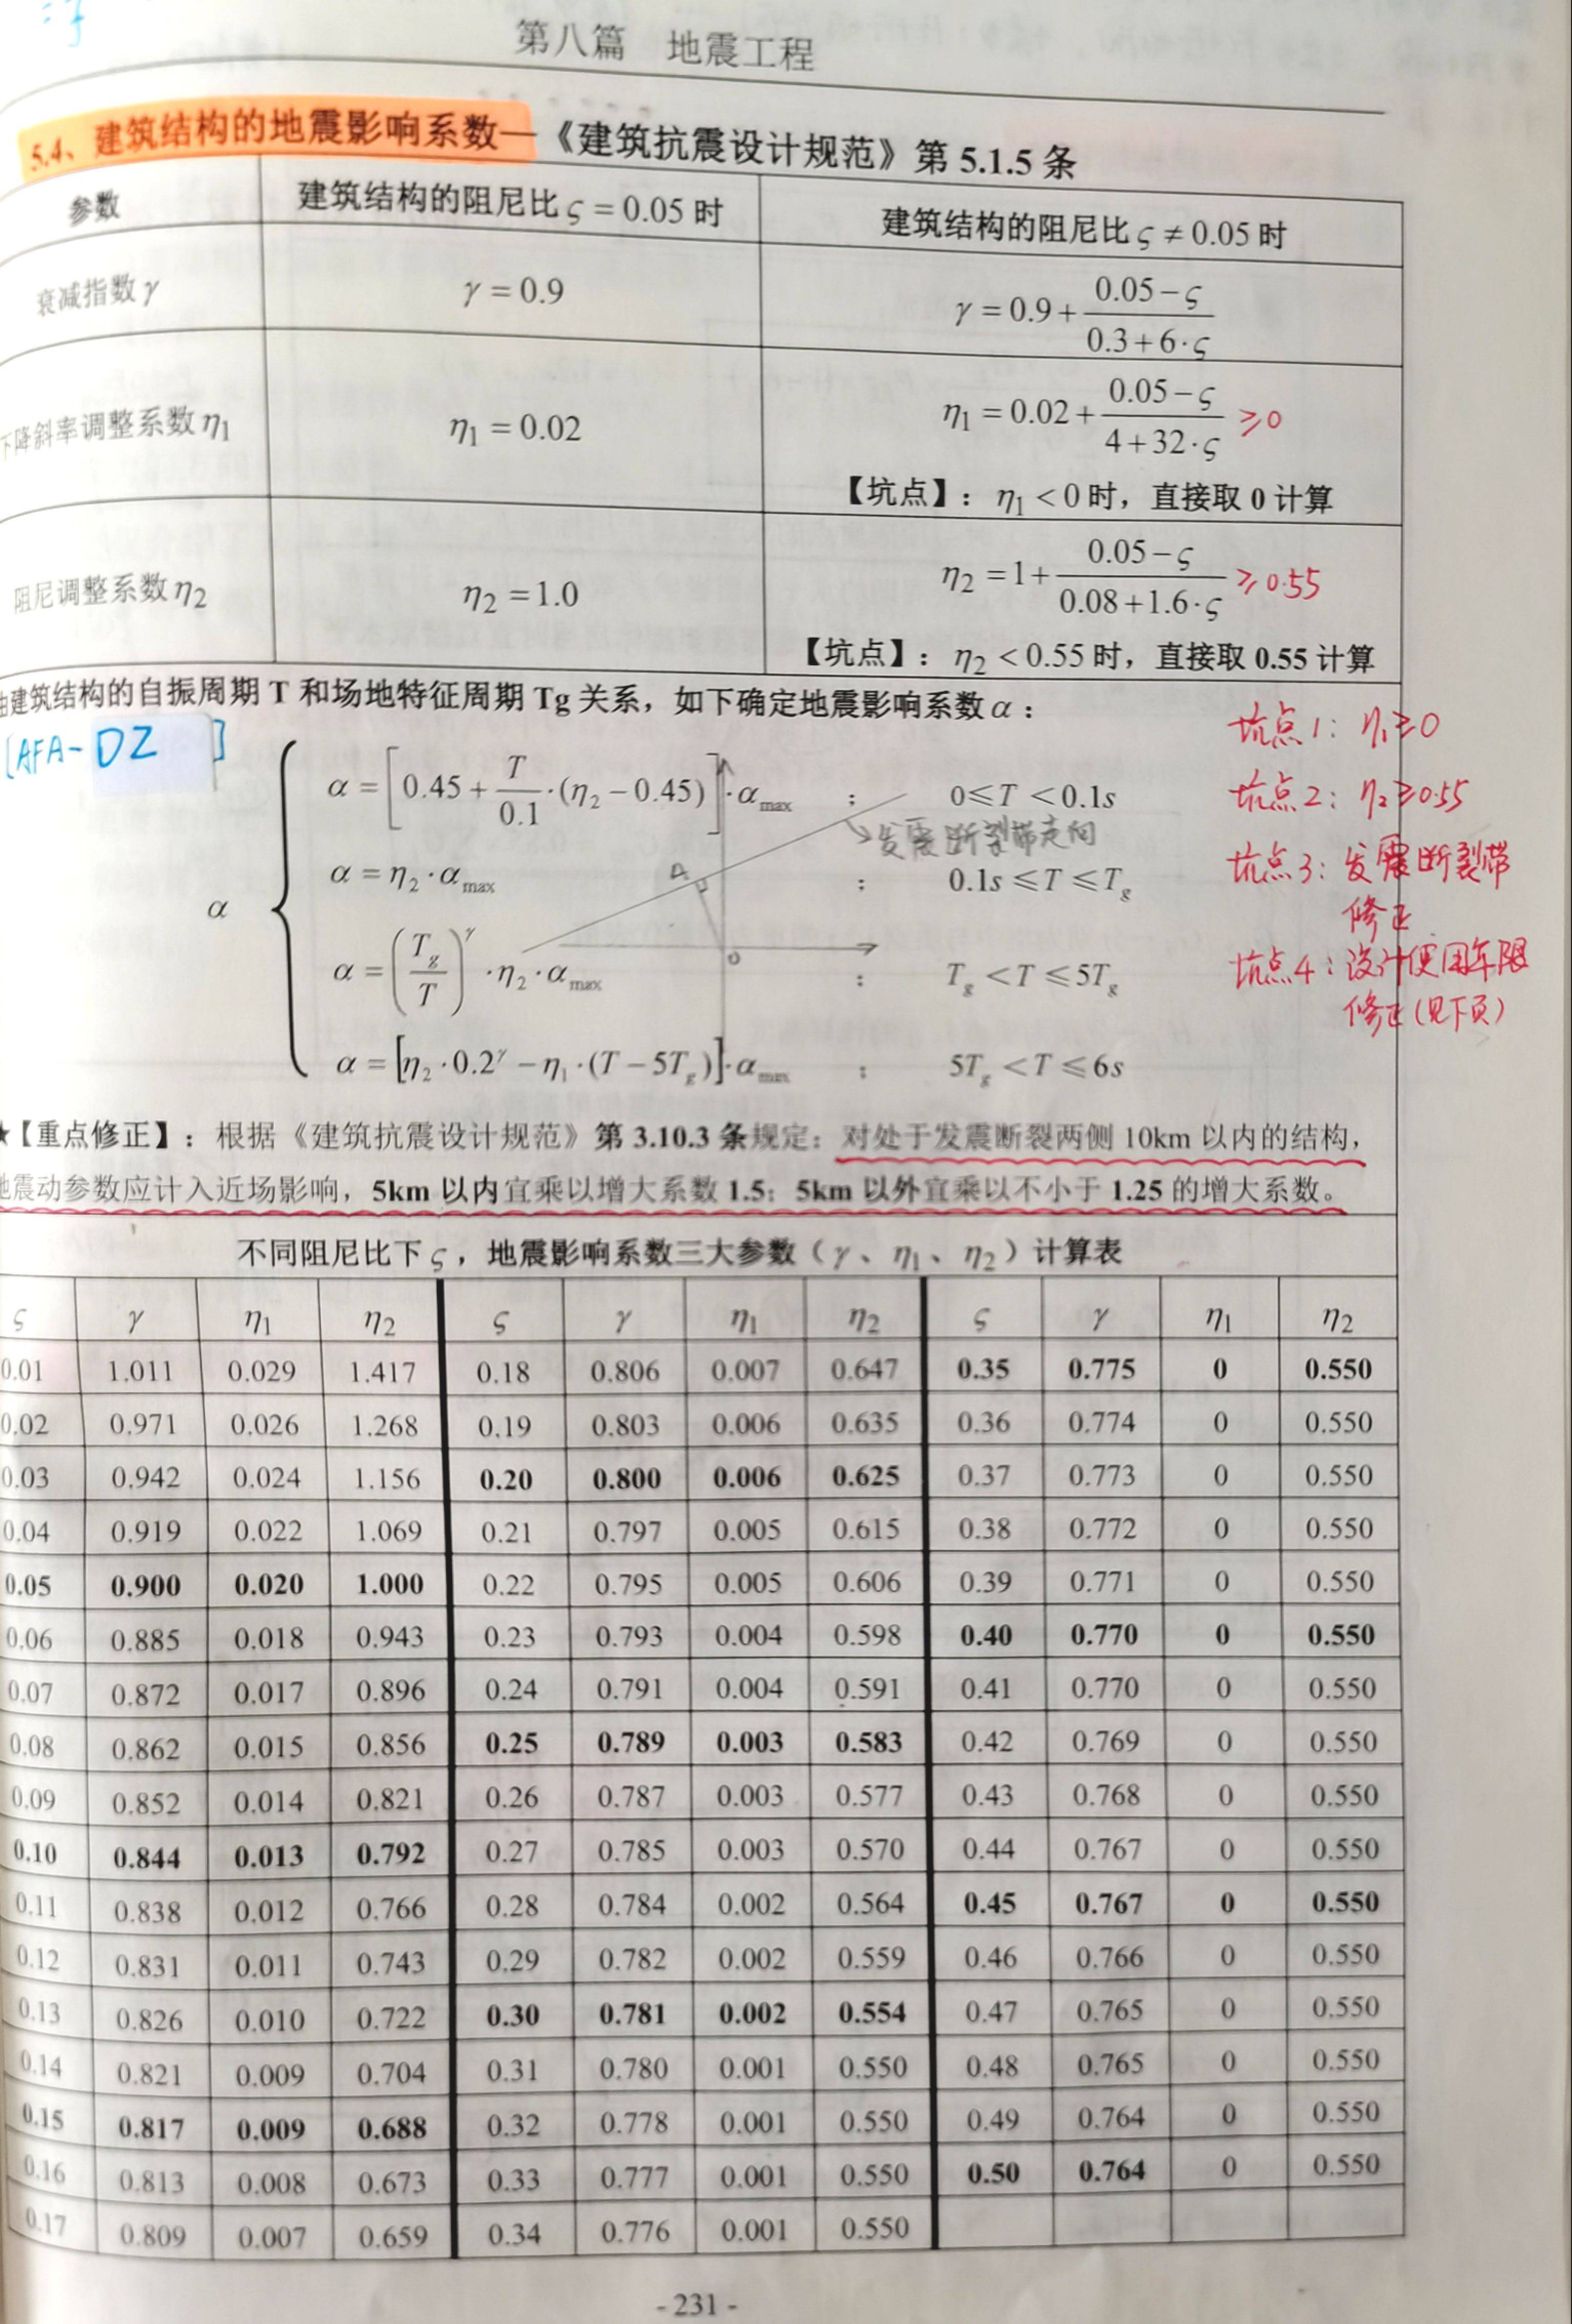 第八篇 地震工程
5.4、建筑结构的地震影响系数—《建筑抗震设计规范》第 5.1.5 条
参数 建筑结构的阻尼比 ς = 0.05 时 建筑结构的阻尼比 ς ≠ 0.05 时
衰减指数 γ γ = 0.9 γ = 0.9 + (0.05 − ς)/(0.3 + 6·ς)
下降斜率调整系数 η₁ η₁ = 0.02 η₁ = 0.02 + (0.05 − ς)/(4 + 32·ς) ≥0
【坑点】：η₁ < 0 时，直接取 0 计算
阻尼调整系数 η₂ η₂ = 1.0 η₂ = 1 + (0.05 − ς)/(0.08 + 1.6·ς) ≥0.55
【坑点】：η₂ < 0.55 时，直接取 0.55 计算
由建筑结构的自振周期 T 和场地特征周期 Tg 关系，如下确定地震影响系数 α：
[AFA-DZ]
坑点1：η₁≥0
α = [0.45 + T/0.1·(η₂ − 0.45)]·α_max ； 0≤T<0.1s
坑点2：η₂≥0.55
发震断裂带走向
α = η₂·α_max ； 0.1s≤T≤T_g
坑点3：发震断裂带
修正
A
α
O
α = (T_g/T)^γ·η₂·α_max ； T_g<T≤5T_g
坑点4：设计使用年限
修正(见下页)
α = [η₂·0.2^γ − η₁·(T − 5T_g)]·α_max ； 5T_g<T≤6s
★【重点修正】：根据《建筑抗震设计规范》第 3.10.3 条规定：对处于发震断裂两侧 10km 以内的结构，
地震动参数应计入近场影响，5km 以内宜乘以增大系数 1.5；5km 以外宜乘以不小于 1.25 的增大系数。
不同阻尼比下 ς，地震影响系数三大参数（γ、η₁、η₂）计算表
ς γ η₁ η₂ ς γ η₁ η₂ ς γ η₁ η₂
0.01 1.011 0.029 1.417 0.18 0.806 0.007 0.647 0.35 0.775 0 0.550
0.02 0.971 0.026 1.268 0.19 0.803 0.006 0.635 0.36 0.774 0 0.550
0.03 0.942 0.024 1.156 0.20 0.800 0.006 0.625 0.37 0.773 0 0.550
0.04 0.919 0.022 1.069 0.21 0.797 0.005 0.615 0.38 0.772 0 0.550
0.05 0.900 0.020 1.000 0.22 0.795 0.005 0.606 0.39 0.771 0 0.550
0.06 0.885 0.018 0.943 0.23 0.793 0.004 0.598 0.40 0.770 0 0.550
0.07 0.872 0.017 0.896 0.24 0.791 0.004 0.591 0.41 0.770 0 0.550
0.08 0.862 0.015 0.856 0.25 0.789 0.003 0.583 0.42 0.769 0 0.550
0.09 0.852 0.014 0.821 0.26 0.787 0.003 0.577 0.43 0.768 0 0.550
0.10 0.844 0.013 0.792 0.27 0.785 0.003 0.570 0.44 0.767 0 0.550
0.11 0.838 0.012 0.766 0.28 0.784 0.002 0.564 0.45 0.767 0 0.550
0.12 0.831 0.011 0.743 0.29 0.782 0.002 0.559 0.46 0.766 0 0.550
0.13 0.826 0.010 0.722 0.30 0.781 0.002 0.554 0.47 0.765 0 0.550
0.14 0.821 0.009 0.704 0.31 0.780 0.001 0.550 0.48 0.765 0 0.550
0.15 0.817 0.009 0.688 0.32 0.778 0.001 0.550 0.49 0.764 0 0.550
0.16 0.813 0.008 0.673 0.33 0.777 0.001 0.550 0.50 0.764 0 0.550
0.17 0.809 0.007 0.659 0.34 0.776 0.001 0.550
- 231 -